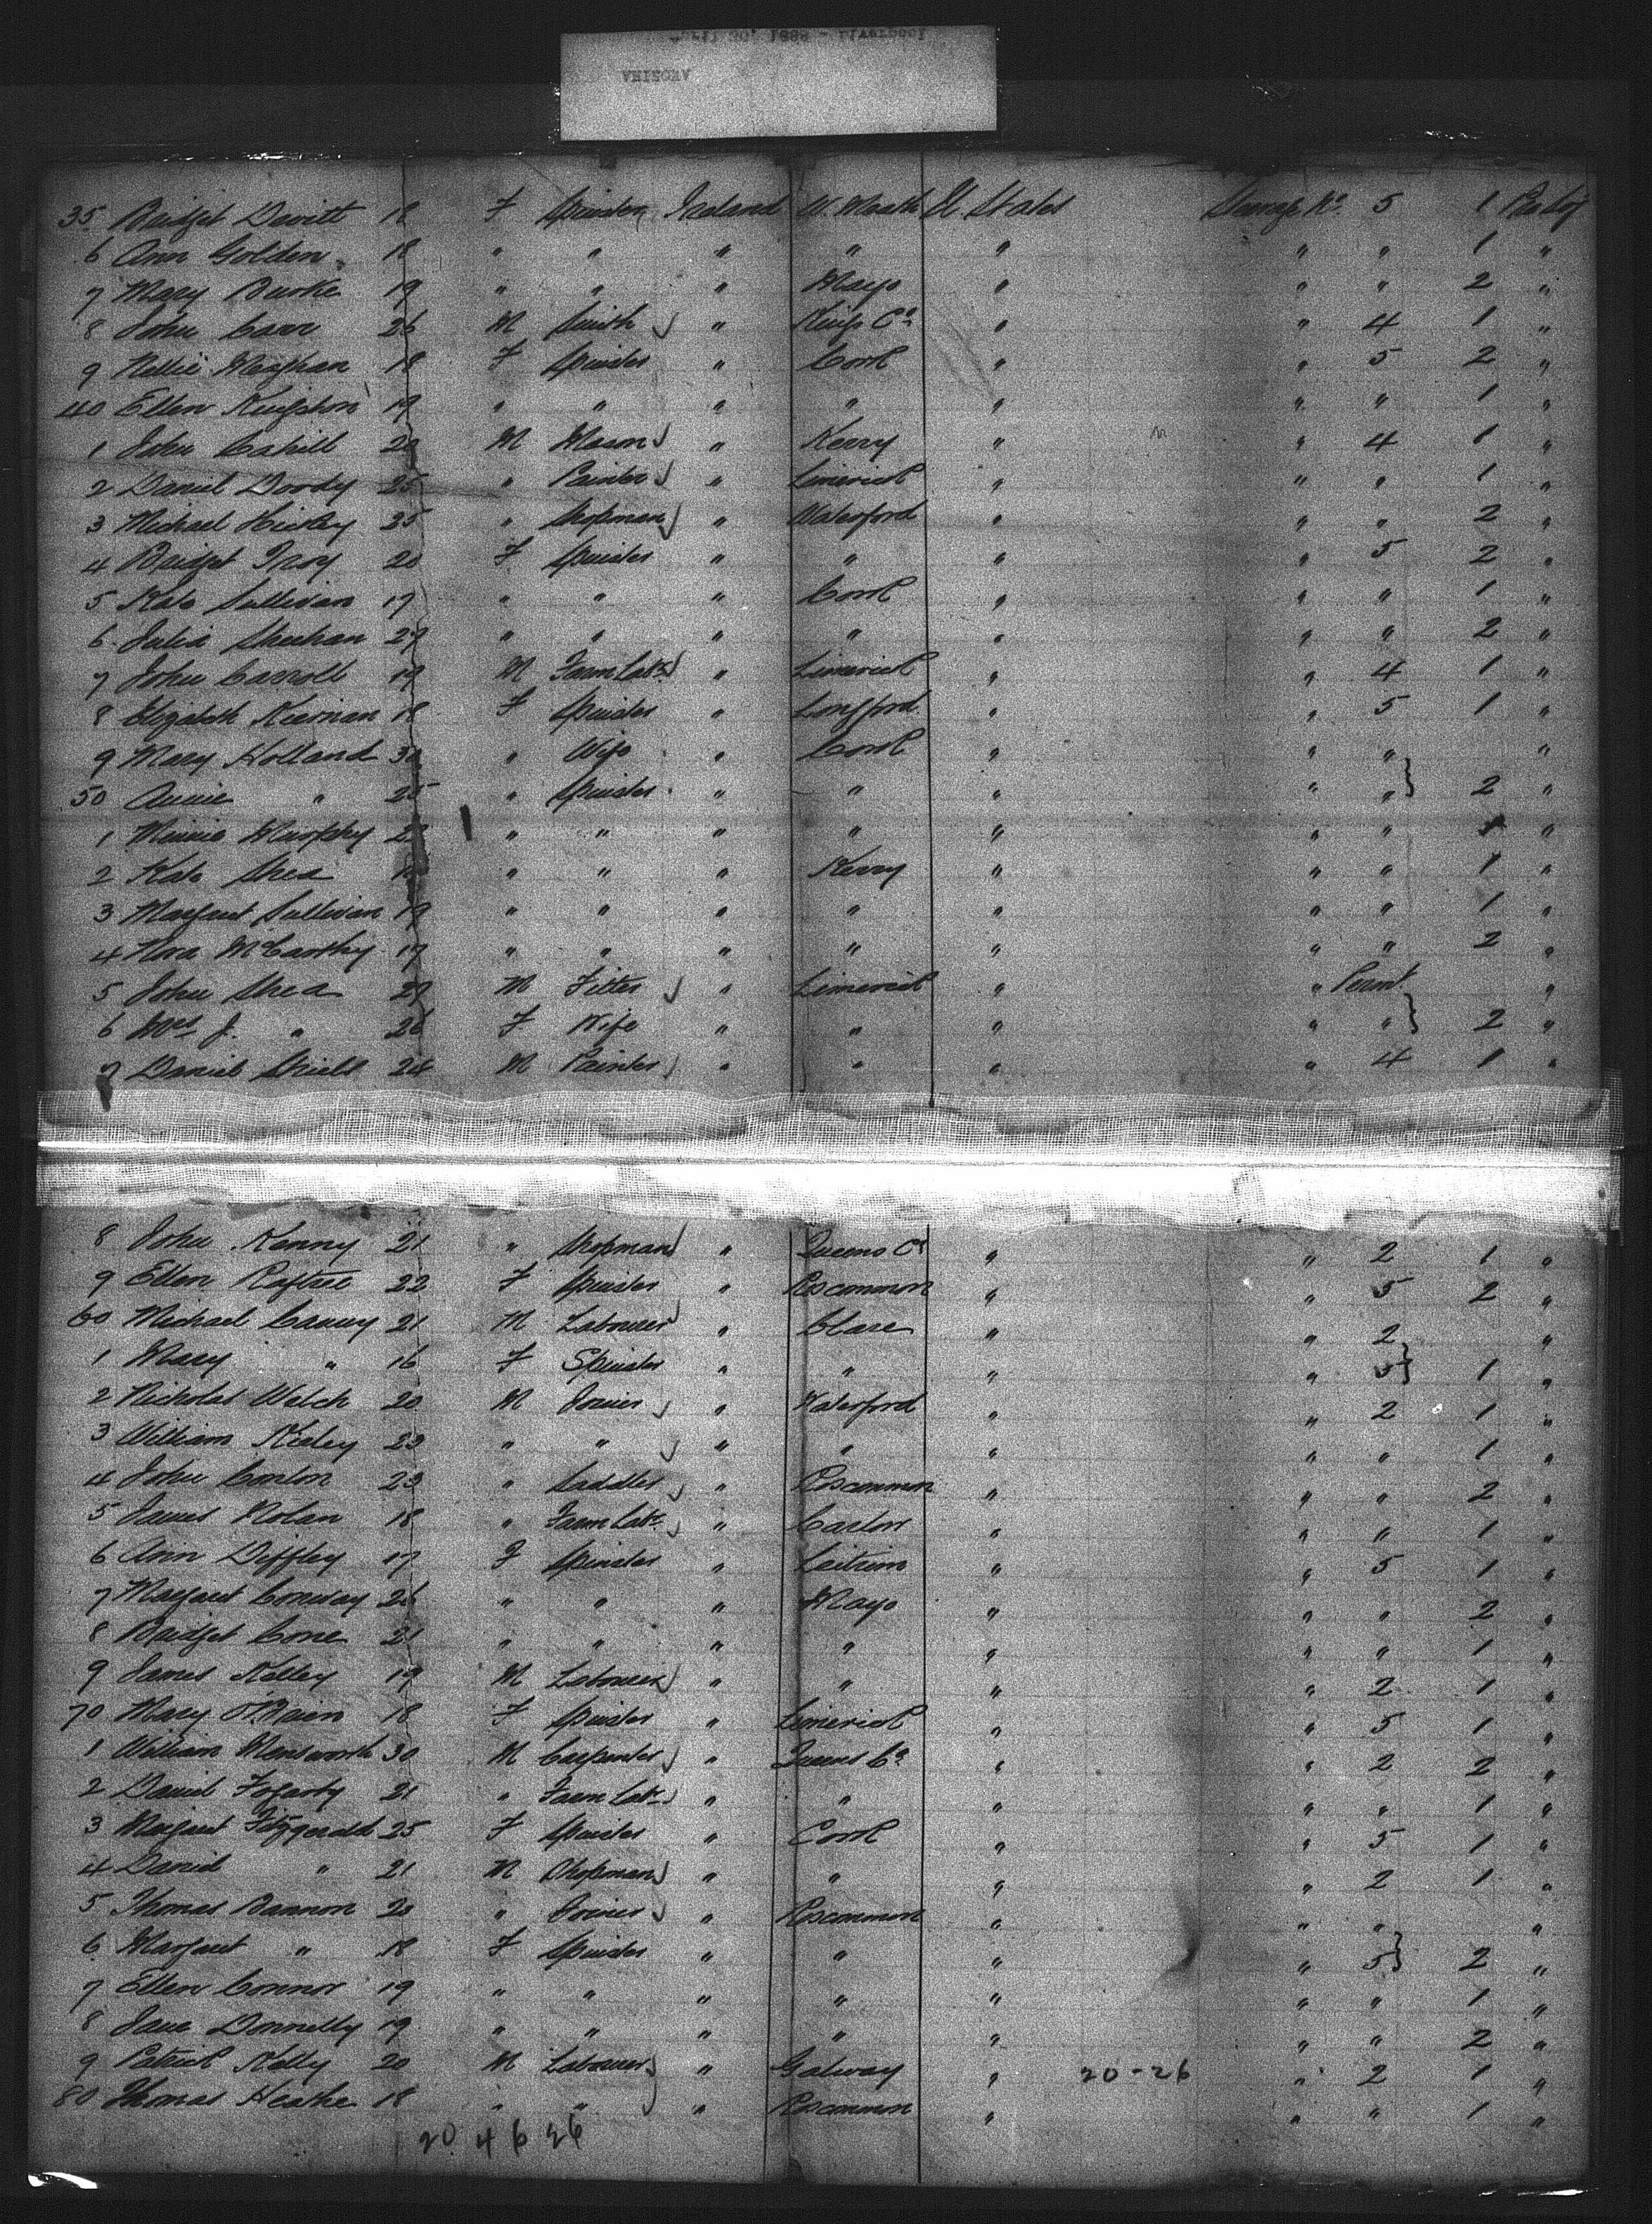 April 30, 1888 - Liverpool
35 Bridget Devitt 18 F Spinster Ireland W. Meath U. States Steerage No. 5 1
6 Ann Golden 18 " " " " " " " 1 "
7 Mary Burke 19 " " " Mayo " " " 2 "
8 John Carr 26 M Smith " Kings Co. " " 4 1 "
9 Nellie Meaghan 18 F Spinster " Cork " " 5 2 "
40 Ellen Kingston 19 " " " " " " " 1 "
1 John Cahill M Mason " Kerry " " 4 1 "
2 Daniel Doody 25 " Painter " Limerick " " " 1 "
3 Michael Hickey 35 " Shopman " Waterford " " " 2 "
4 Bridget Troy 20 F Spinster " " " " 5 2 "
5 Kate Sullivan 17 " " " Cork " " " 1 "
6 Julia Sheehan 27 " " " " " " " 2 "
7 John Carroll 19 M Farm Labr " Limerick " " 4 1 "
8 Elizabeth Kiernan 18 F Spinster " Longford " " 5 1 "
9 Mary Holland 30 " Wife " Cork " " " "
50 Annie " 25 " Spinster " " " " " 2 "
1 Minnie Murphy " " " " " " " "
2 Kate Shea " " " Kerry " " " 1 "
3 Margaret Sullivan 19 " " " " " " " 1 "
4 Nora McCarthy 17 " " " " " " " 2 "
5 John Shea 29 M Fitter " Limerick " " "
6 Mrs J. " 26 F Wife " " " " " 2 "
7 Daniel Shield 24 M Painter " " " " 4 1 "
8 John Kenny 21 " Shopman " Queens Co " " 2 1 "
9 Ellen Raftree 22 F Spinster " Roscommon " " 5 2 "
60 Michael Canny 21 M Labourer " Clare " " 2 "
1 Mary " 16 F Spinster " " " " 5 1 "
2 Nicholas Welch 20 M Joiner " Waterford " " 2 1 "
3 William Kieley 23 " " " " " " " 1 "
4 John Conlon 23 " Saddler " Roscommon " " " 2 "
5 James Nolan 18 " Farm Labr " Carlow " " " 1 "
6 Ann Diffley 17 F Spinster " Leitrim " " 5 1 "
7 Margaret Conway 26 " " " Mayo " " " 2 "
8 Bridget Cone 21 " " " " " " " 1 "
9 James Kelley 19 M Labourer " " " " 2 1 "
70 Mary O'Brien 18 F Spinster " Limerick " " 5 1 "
1 William Wensworth 30 M Carpenter " Queens Co. " " 2 2 "
2 Daniel Fogarty 21 " Farm Labr " " " " " 1 "
3 Margaret Fitzgerald 25 F Spinster " Cork " " 5 1 "
4 David " 21 M Shopman " " " " 2 1 "
5 Thomas Bannon 20 " Joiner " Roscommon " " " "
6 Margaret " 18 F Spinster " " " " 5 2 "
7 Ellen Connor 19 " " " " " " " 1 "
8 Jane Donnelly 19 " " " " " " " 2 "
9 Patrick Kelly 20 M Labourer " Galway " 20-26 " 2 1 "
80 Thomas Heake 18 " " " Roscommon " " " 1 "
20 4 6 26